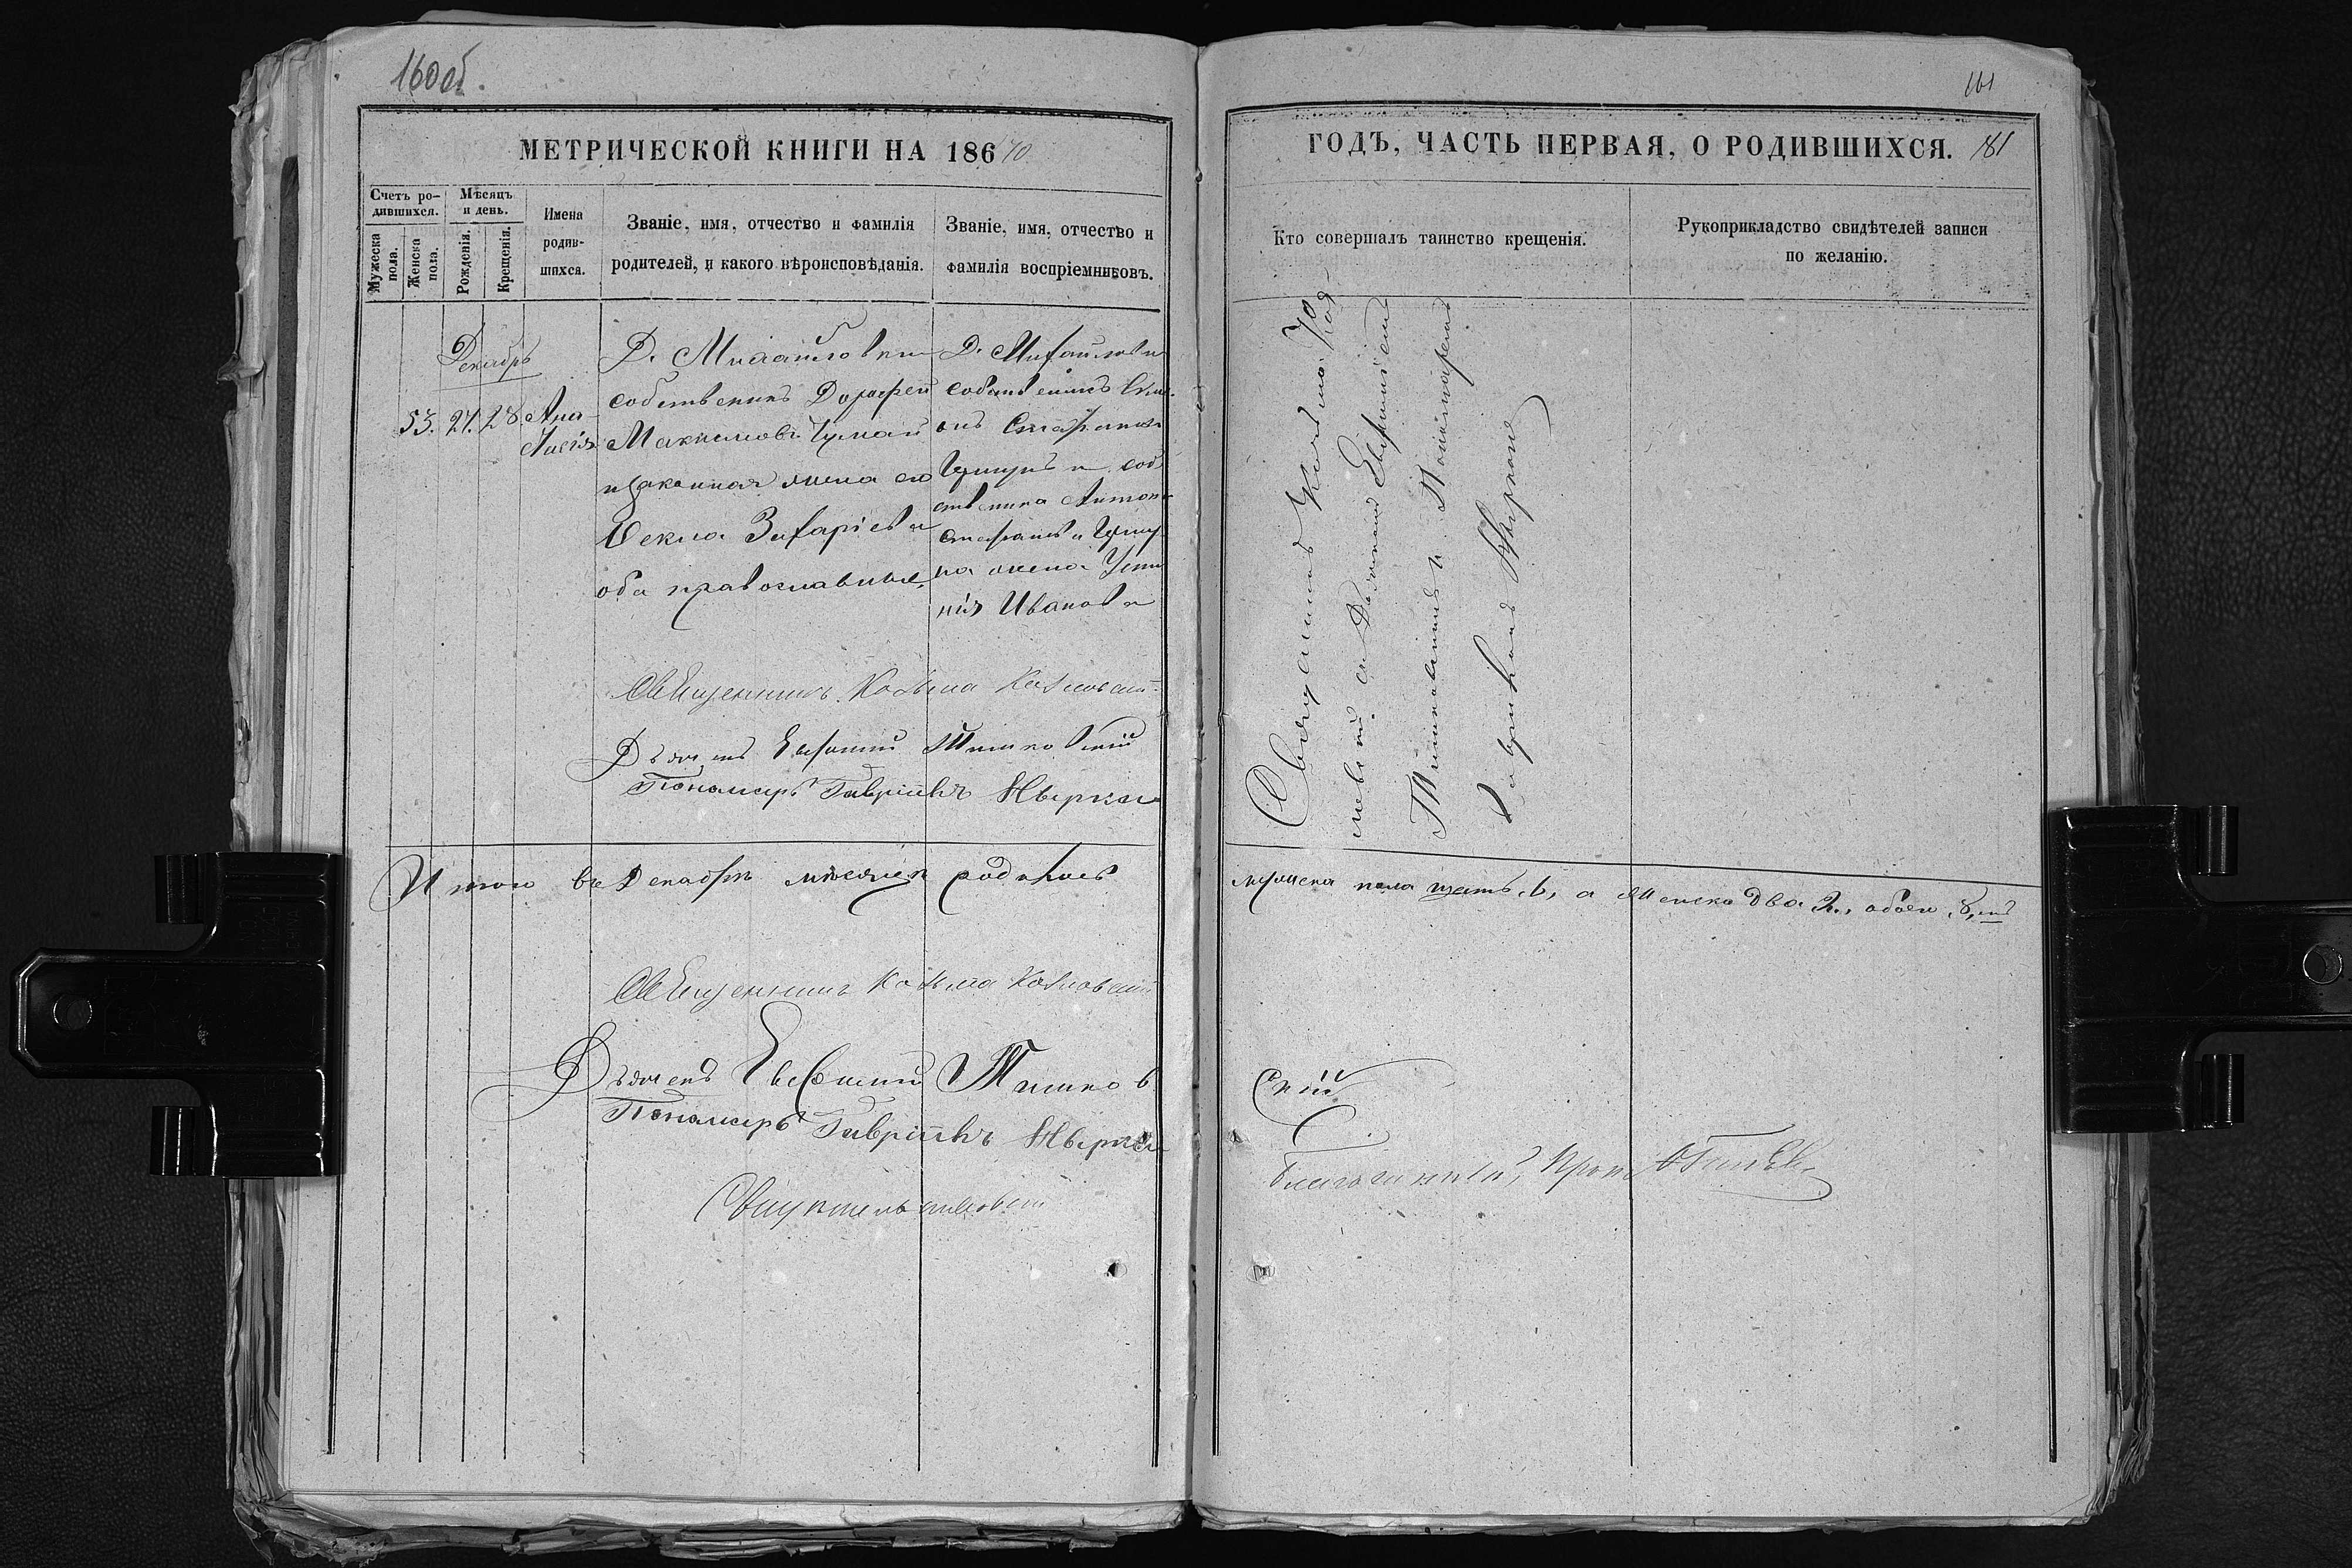 160 об.
МЕТРИЧЕСКОЙ КНИГИ НА 186 70
Счетъ ро-
дившихся.
Мѣсяцъ
и день.
Мужеска
пола.
Женска
пола.
Рожденія.
Крещенія.
Имена
родив-
шихся.
Званіе, имя, отчество и фамилія
родителей, и какого вѣроисповѣданія.
Званіе, имя, отчество и
фамилія воспріемниковъ.
Декабрь
53. 27. 28 Ана
стасія
Д. Михайловки
собственникъ Дорофей
Максимовъ
и законная жена его
Ѳекла Захаріева
оба православные
Д. Михайловки
собственникъ
Стефановъ
и соб
ственника Антона
Стефанова
на жена
нія Иванова
Священникъ Козьма Козловскій
Дьячекъ Евфимій Тишковскій
Пономарь Гавріилъ
Итого въ Декабрѣ мѣсяцѣ родилось
Священникъ Козьма Козловскій
Дьячекъ Евфимій Тишков
Пономарь Гавріилъ
161
ГОДЪ, ЧАСТЬ ПЕРВАЯ, О РОДИВШИХСЯ. 181
Кто совершалъ таинство крещенія.
Рукоприкладство свидѣтелей записи
по желанію.
Священникъ Козьма Коз
ловскій съ Дьячкомъ Евфиміемъ
Тишковскимъ и Пономаремъ
Гавріиломъ
мужеска пола шесть, 6, а женска два 2, обоего, 8,
скій
Благочинный,